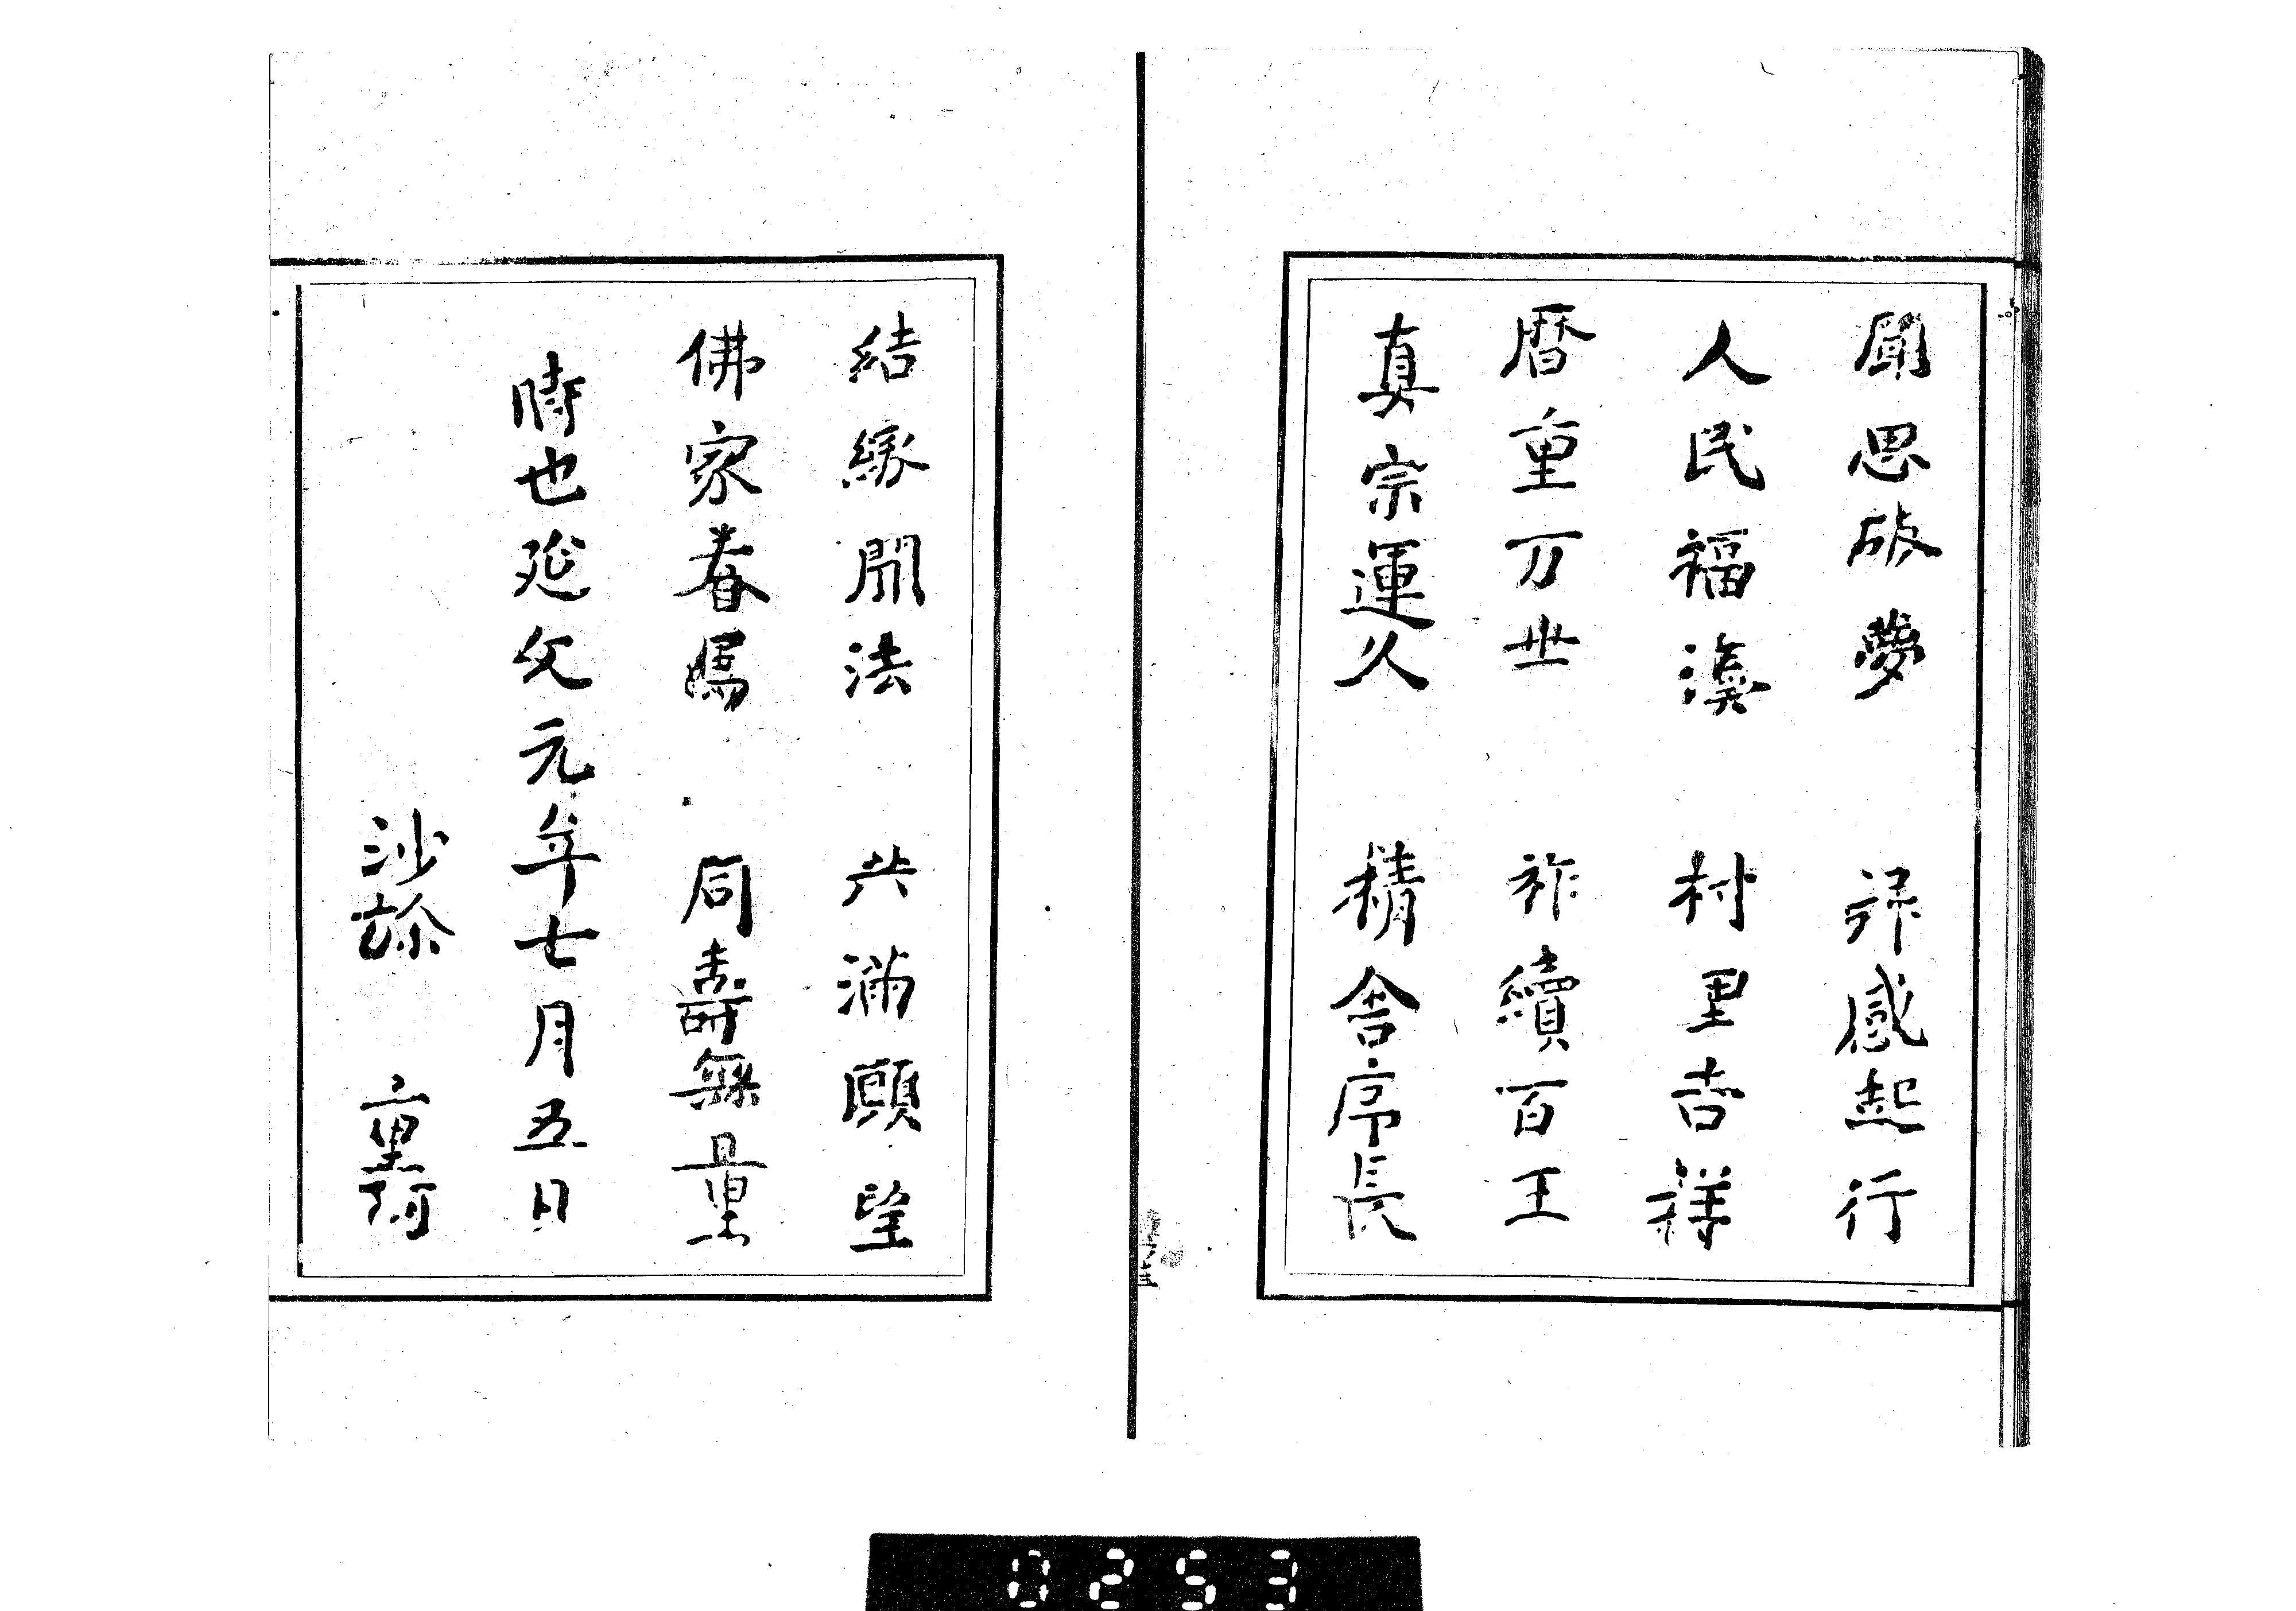 思破夢　禅感起行
人民福湊　村里吉祥
暦重万世　祚續百王
真宗運久　精舎序長
結縁聞法　共満願望
佛家春馬　同壽無量
時也延文元年七月五日
沙弥　重阿
0253